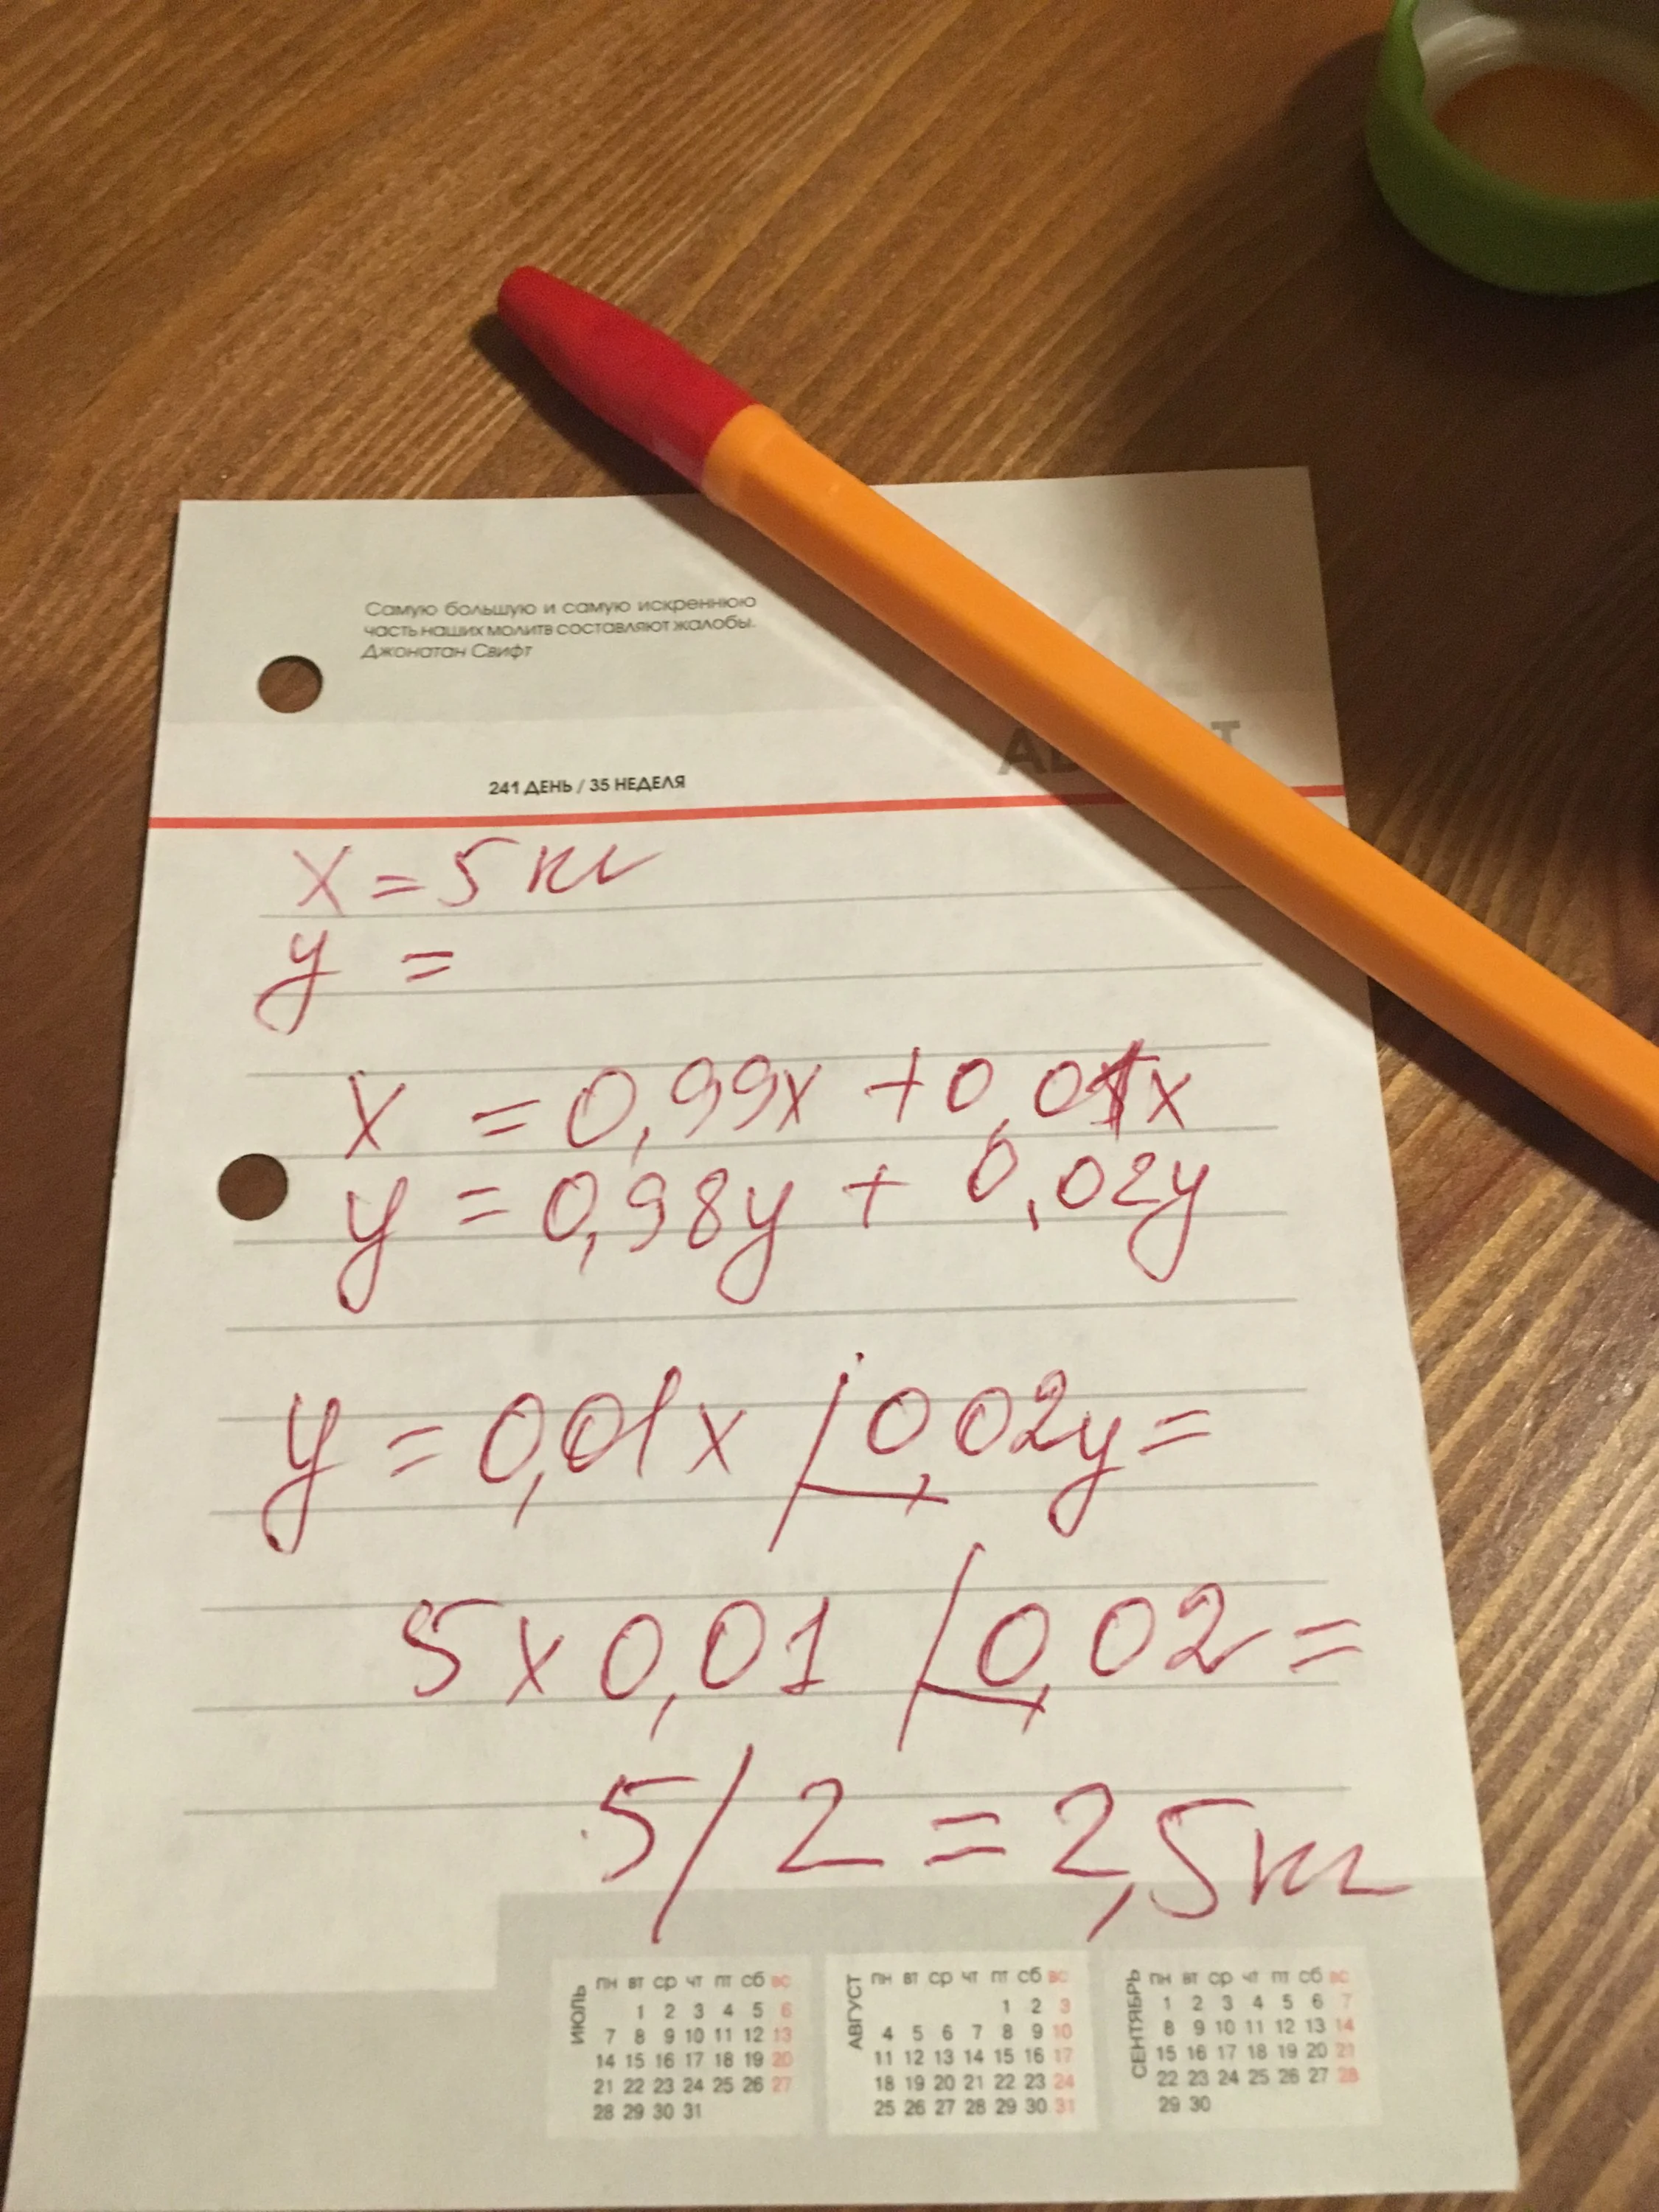 Самую большую и самую искреннюю
часть наших молитв составляют жалобы.
Джонатан Свифт
241 ДЕНЬ / 35 НЕДЕЛЯ
x = 5 кг
y =
x = 0,99x + 0,01x
y = 0,98y + 0,02y
y = 0,01x / 0,02y =
5 x 0,01 / 0,02 =
5 / 2 = 2,5 кг
ИЮЛЬ
ПН ВТ СР ЧТ ПТ СБ ВС
1 2 3 4 5 6
7 8 9 10 11 12 13
14 15 16 17 18 19 20
21 22 23 24 25 26 27
28 29 30 31
АВГУСТ
ПН ВТ СР ЧТ ПТ СБ ВС
1 2 3
4 5 6 7 8 9 10
11 12 13 14 15 16 17
18 19 20 21 22 23 24
25 26 27 28 29 30 31
СЕНТЯБРЬ
ПН ВТ СР ЧТ ПТ СБ ВС
1 2 3 4 5 6 7
8 9 10 11 12 13 14
15 16 17 18 19 20 21
22 23 24 25 26 27 28
29 30